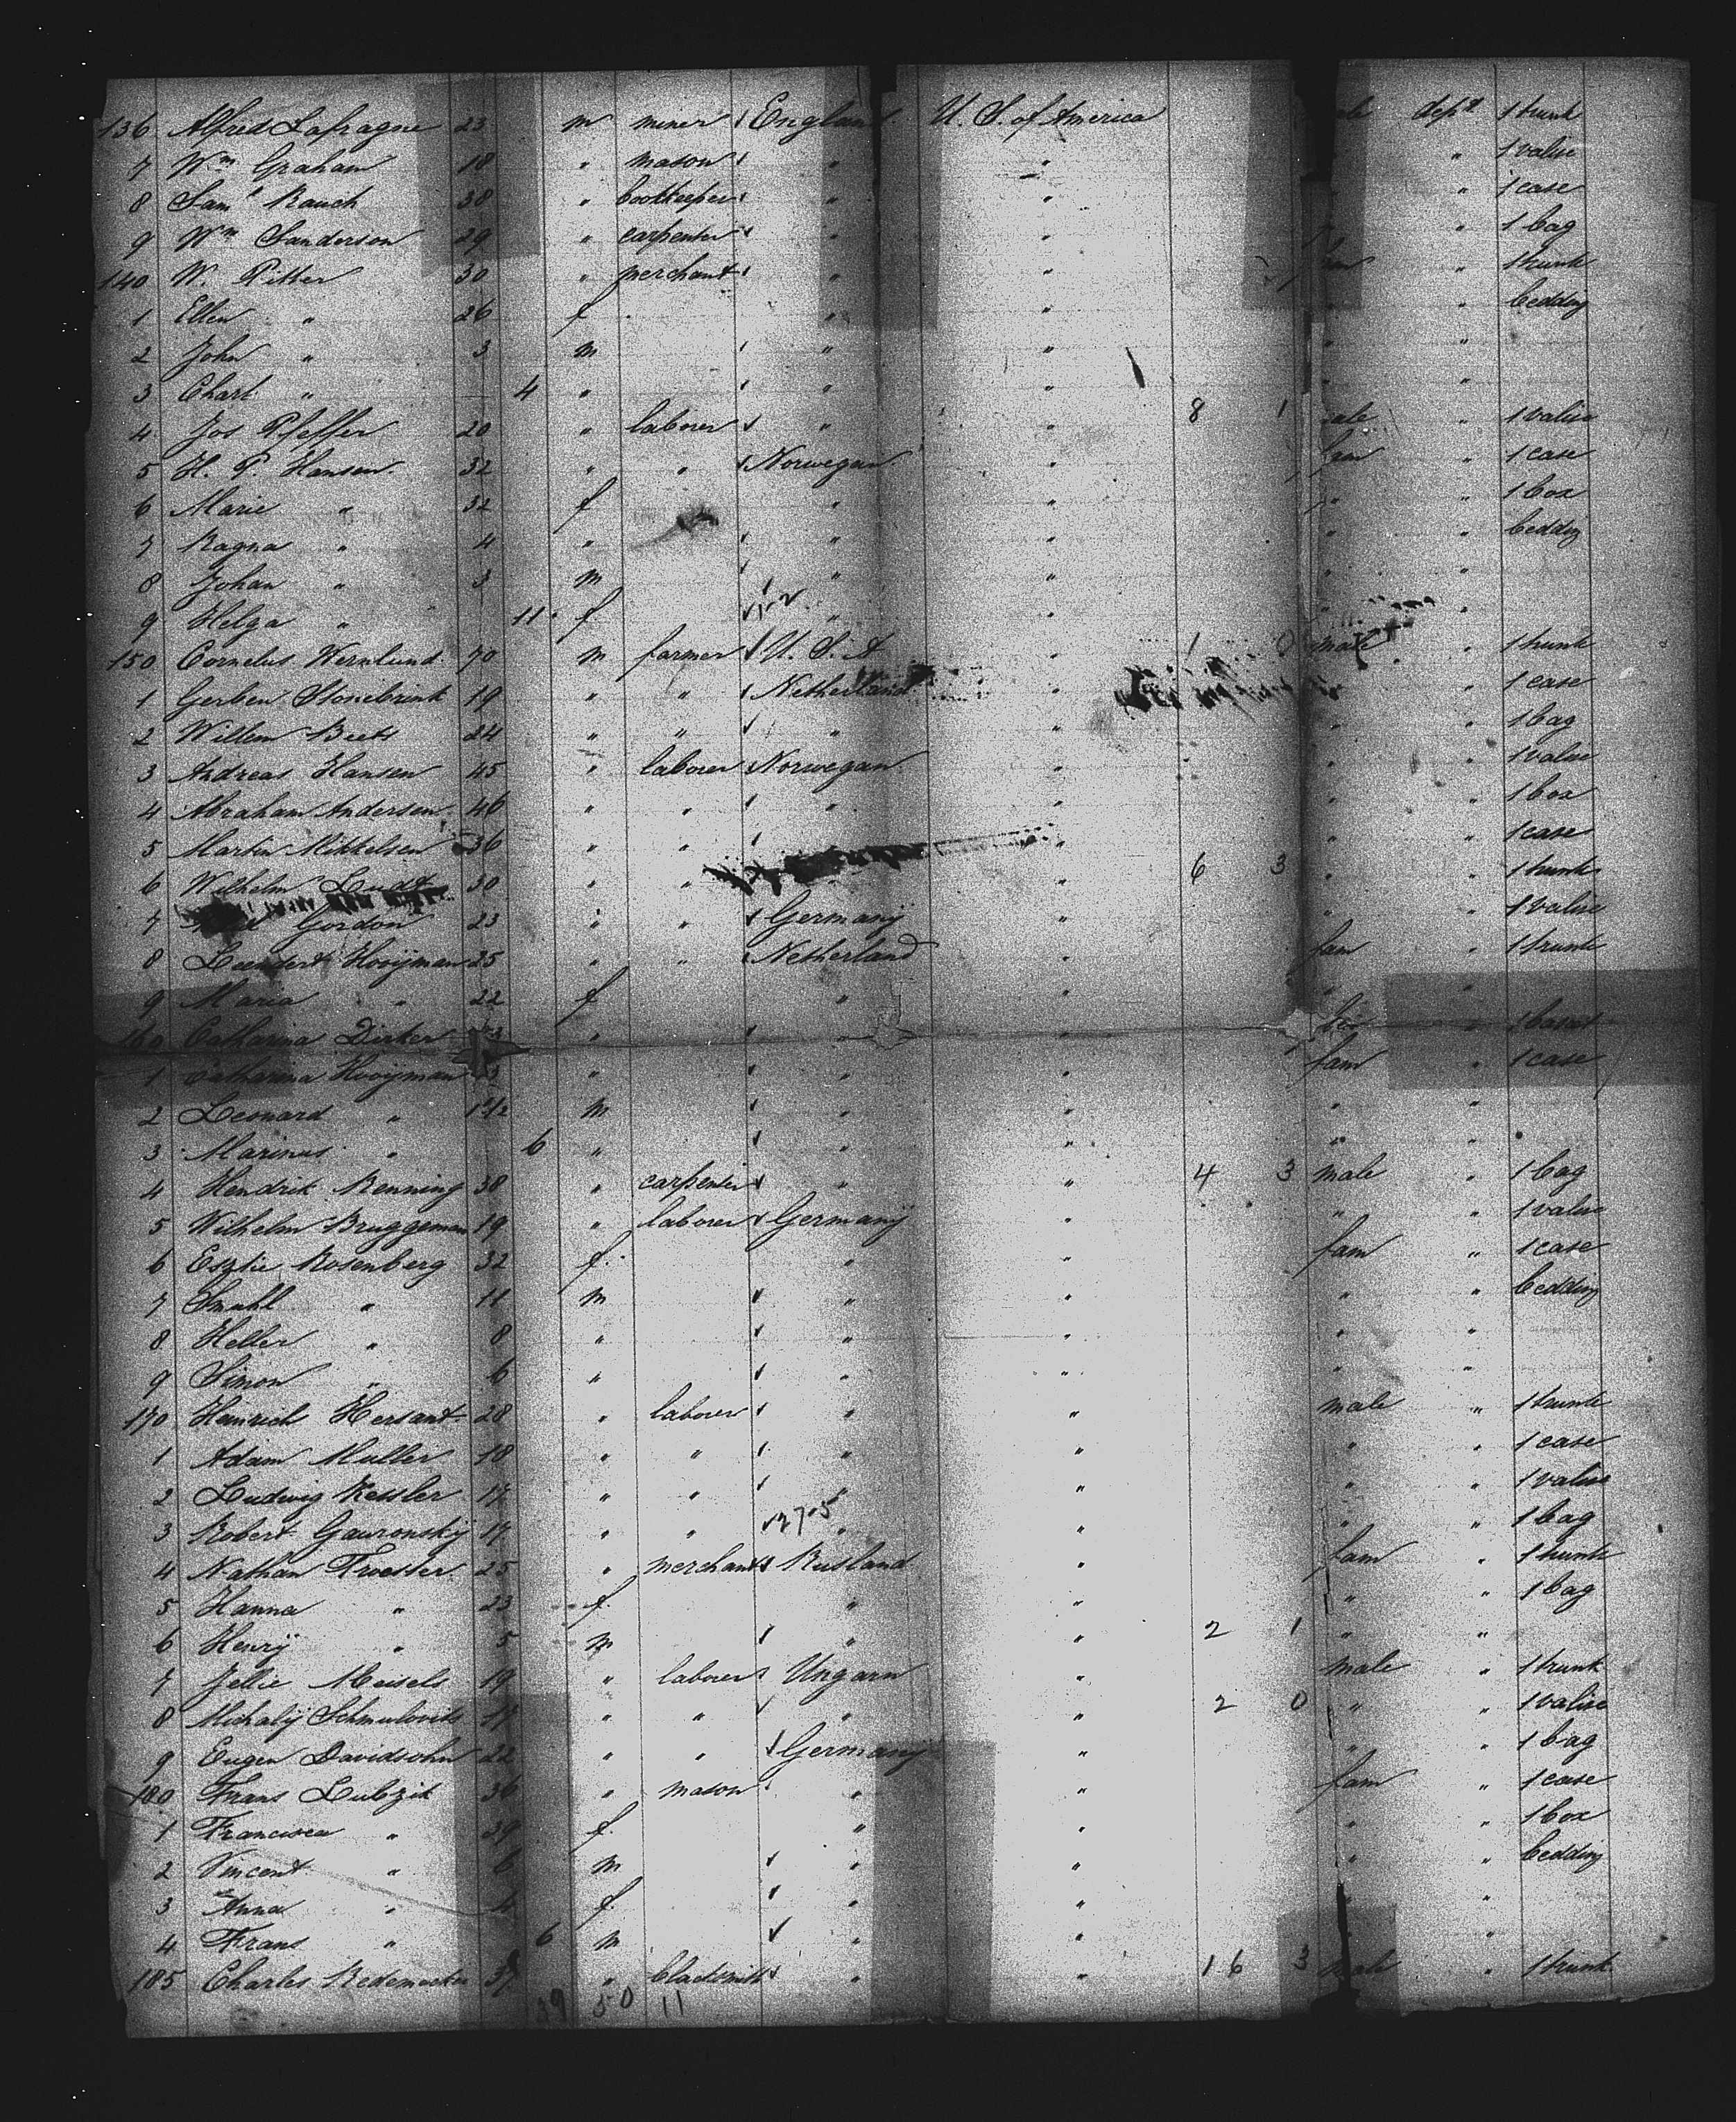 136 Alfred Lafragne 23 m miner England U. S. of America dep't 1 trunk
7 Wm Graham 18 " mason " " " 1 valise
8 Saml Rauch 38 " bookkeeper " " " 1 case
9 Wm Sanderson 29 " carpenter " " " 1 bag
140 W. Pitter 30 " merchant " " fam " 1 trunk
1 Ellen " 26 f " " " " bedding
2 John " 3 m " " " "
3 Charl " 4 " " " " "
4 Jos Pfeffer 20 " laborer " " 8 1 male " 1 valise
5 H. P. Hansen 32 " " Norwegan " fam " 1 case
6 Marie " 32 f " " " " 1 box
7 Ragna " 4 " " " " " bedding
8 Johan " 3 m " " " "
9 Helga " 11 f " " " "
150 Cornelus Wernlund 70 m farmer U. S. A " 1 0 male " 1 trunk
1 Gerben Stonebrink 19 " " Netherland " " " 1 case
2 Willem Beets 24 " " " " " " 1 bag
3 Andreas Hansen 45 " laborer Norwegan " " " 1 valise
4 Abraham Andersen 46 " " " " " " 1 box
5 Martin Mikkelsen 36 " " " " " 1 case
6 Wilhelm 30 " " " 6 3 " " 1 trunk
7 Gordon 23 " " Germany " " " 1 valise
8 Leendert Hooijman 25 " " Netherland " fam " 1 trunk
9 Maria " 22 f " " " "
160 Catharina Dirker " " "
1 Catharina Hooijman " " " fam " 1 case
2 Leonard " 1 1/2 m " " " "
3 Marinus " 6 " " " " "
4 Hendrik Renning 38 " carpenter " " 4 3 male " 1 bag
5 Wilhelm Bruggeman 19 " laborer Germany " " " 1 valise
6 Esztie Rosenberg 32 f " " fam " 1 case
7 Smuhl " 11 m " " " " bedding
8 Heller " 8 " " " " "
9 Simon " 6 " " " " "
170 Heinrich Hersant 28 " laborer " " male " 1 trunk
1 Adam Muller 18 " " " " " " 1 case
2 Ludwig Kessler 17 " " " " " " 1 valise
3 Robert Gauronskij 17 " " " " " " 1 bag
4 Nathan Troester 25 " merchant Rusland " fam " 1 trunk
5 Hanna " 23 f " " " " 1 bag
6 Henrij " 5 m " " 2 1 " "
7 Jellie Meisels 19 " laborer Ungarn " male " 1 trunk
8 Michalij Schmulovits 17 " " " " 2 0 " " 1 valise
9 Eugen Davidsohn 22 " " Germany " " " 1 bag
180 Frans Lubzik 36 " mason " " fam " 1 case
1 Francisca " 39 f " " " " 1 box
2 Vincent " 6 m " " " " bedding
3 Anna " 4 f " " " "
4 Frans " 6 m " " "
185 Charles Redemocker 37 " blacksmith " " 16 3 male " 1 trunk
39 50 11